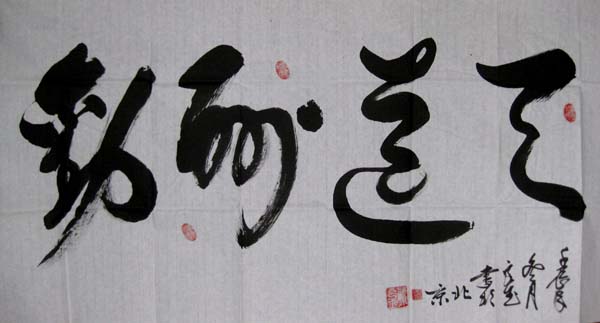 天道酬勤
壬辰年
冬月
書於
北京